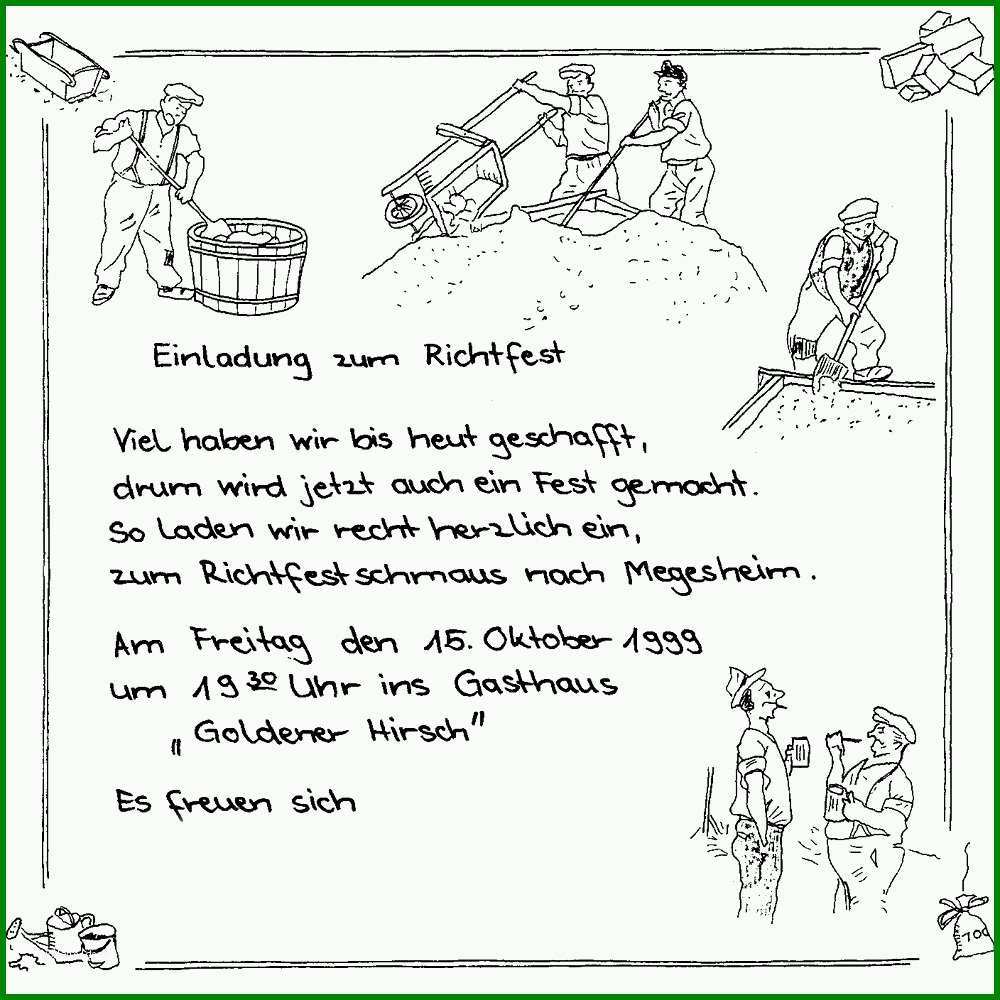 Einladung zum Richtfest
Viel haben wir bis heut geschafft,
drum wird jetzt auch ein Fest gemacht.
So laden wir recht herzlich ein,
zum Richtfestschmaus nach Megesheim.
Am Freitag den 15. Oktober 1999
um 19 30 Uhr ins Gasthaus
„Goldener Hirsch"
Es freuen sich
100